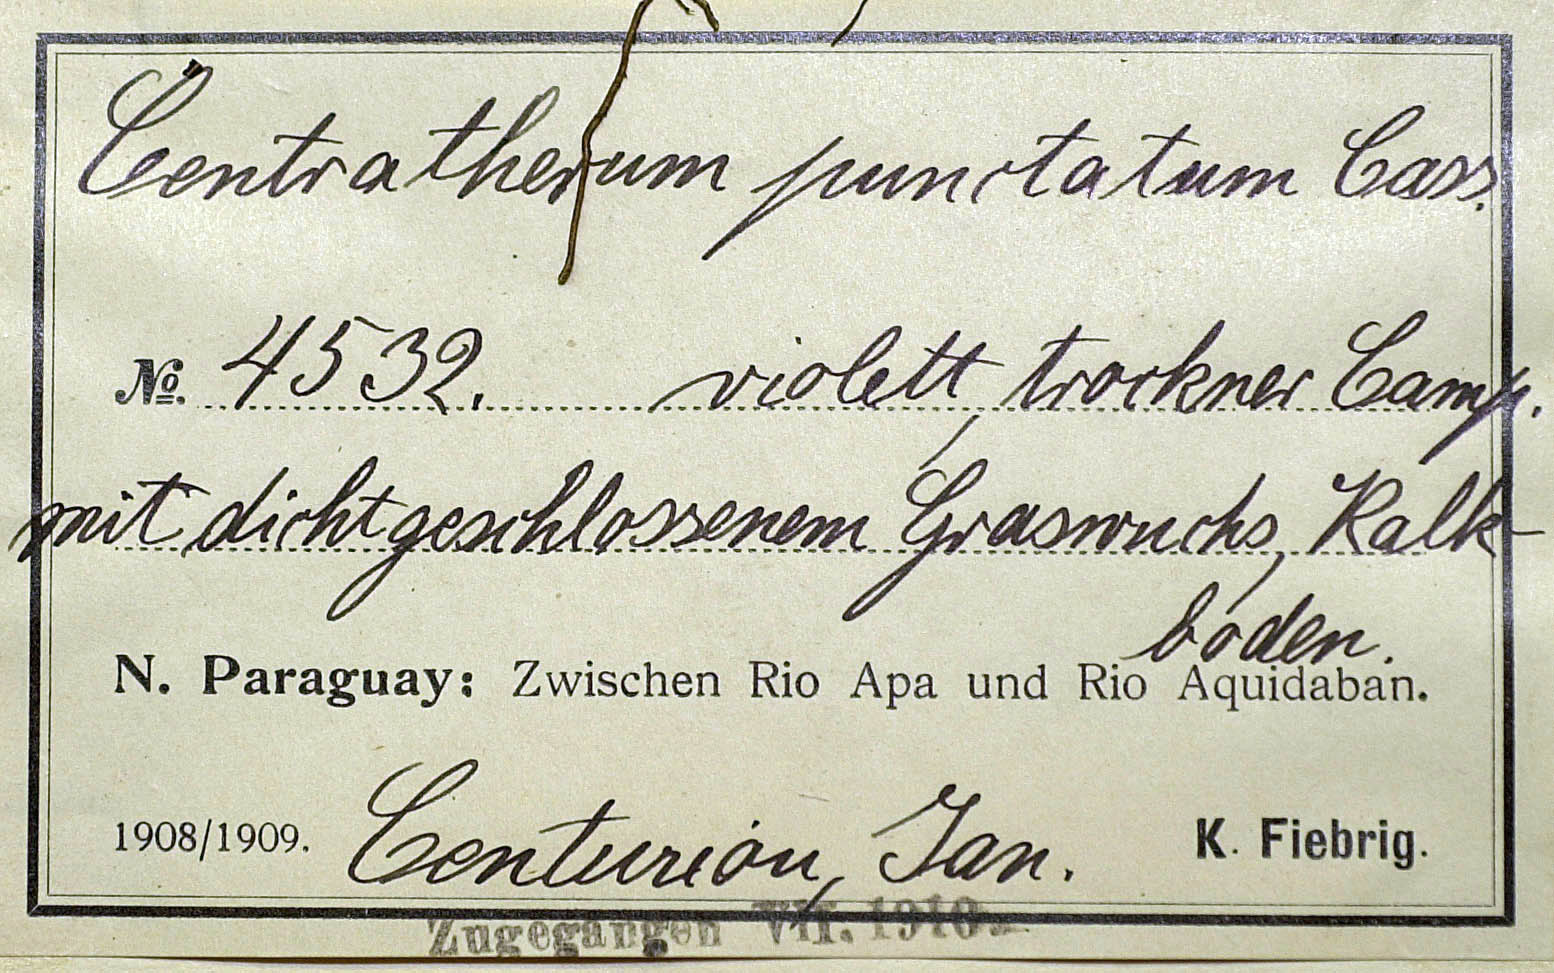 Centratherum punctatum Cass.
No. 4532. violett, trockner Camp.
mit dichtgeschlossenem Graswuchs, Kalk-
boden.
N. Paraguay: Zwischen Rio Apa und Rio Aquidaban.
1908/1909. Centurion, Jan. K. Fiebrig.
Zugegangen VII. 1910.